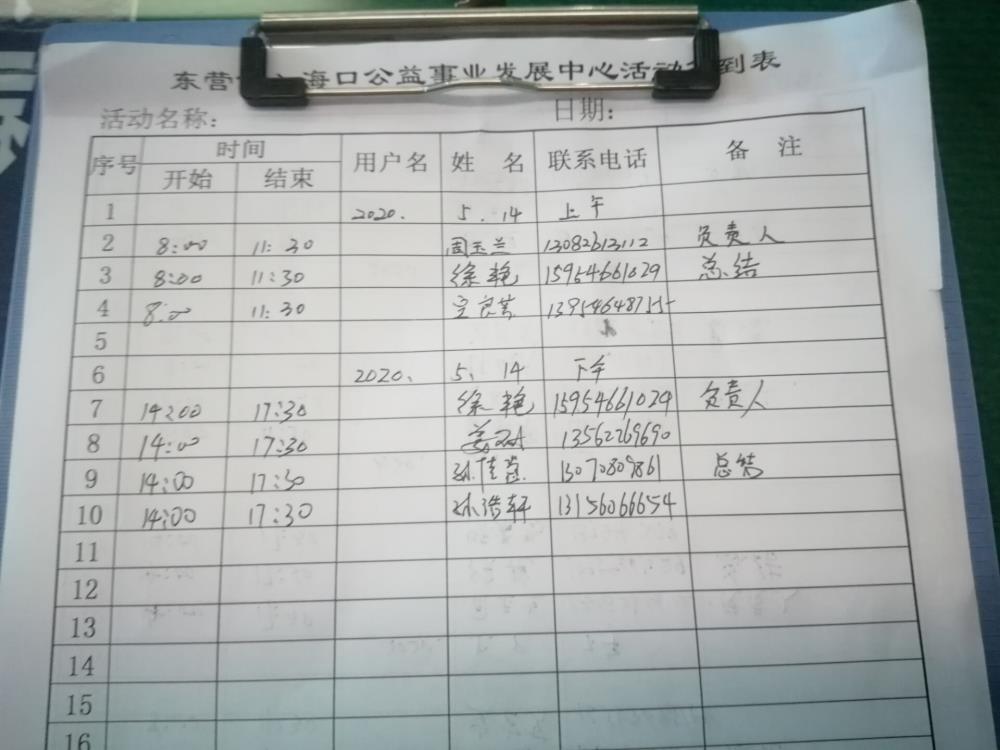 东营 海口公益事业发展中心活动 到表
活动名称： 日期：
序号 时间 用户名 姓 名 联系电话 备 注
开始 结束
1 2020. 5. 14 上午
2 8:00 11:30 周玉兰 13082613112 负责人
3 8:00 11:30 徐艳 15954661029 总结
4 8:00 11:30
5
6 2020. 5. 14 下午
7 14:00 17:30 徐艳 15954661029 负责人
8 14:00 17:30 13562269690
9 14:00 17:30 孙佳蕊 13070809861 总结
10 14:00 17:30 孙浩轩 13156066654
11
12
13
14
15
16